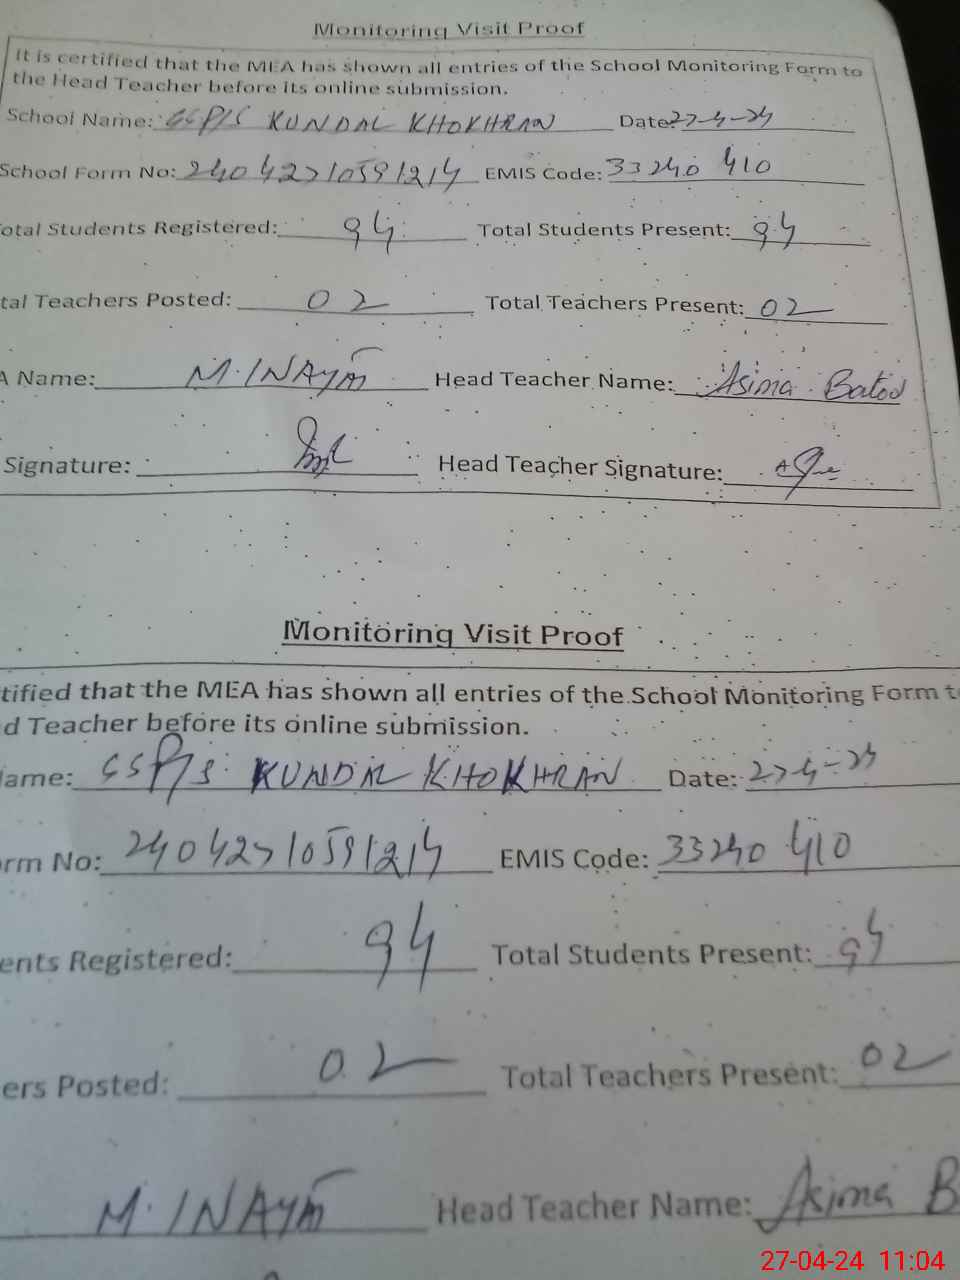 Monitoring Visit Proof
It is certified that the MEA has shown all entries of the School Monitoring Form to
the Head Teacher before its online submission.
School Name: GSP/S KUNDAL KHOKHRAN Date: 27-4-24
School Form No: 24042710591214 EMIS Code: 33240410
otal Students Registered: 94 Total Students Present: 94
tal Teachers Posted: 02 Total Teachers Present: 02
A Name: M. INAYAT Head Teacher Name: Asima Batool
Signature: Head Teacher Signature:
Monitoring Visit Proof
tified that the MEA has shown all entries of the School Monitoring Form t
d Teacher before its online submission.
ame: GSP/S KUNDAL KHOKHRAN Date: 27-4-24
rm No: 24042710591214 EMIS Code: 33240410
ents Registered: 94 Total Students Present: 94
ers Posted: 02 Total Teachers Present: 02
M. INAYAT Head Teacher Name: Asima B
27-04-24 11:04